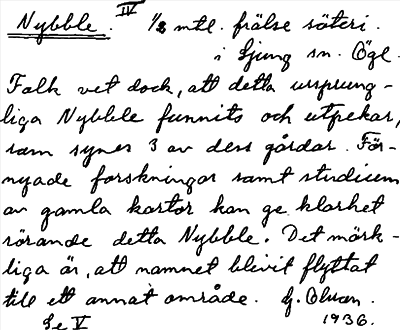 Nybble. IV 1/2 mtl. frälse säteri.
i Ljung sn. Ögl.
Folk vet dock, att detta ursprung-
liga Nybble funnits och utpekar,
som synes 3 av dess gårdar. För-
nyade forskningar samt studium
av gamla kartor kan ge klarhet
rörande detta Nybble. Det märk-
liga är, att namnet blivit flyttat
till ett annat område. G. Olsson.
Se V 1936.